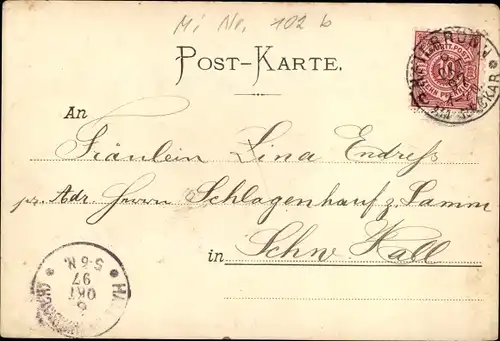 Mi Nr. 102 b
POST-KARTE.
HEILBRONN
AM NECKAR
An
Fräulein Lina Endreß
pr. Adr. Herrn Schlagenhauf z. Lamm
in Schw. Hall
HALL
6
OKT
97
5-6 N.